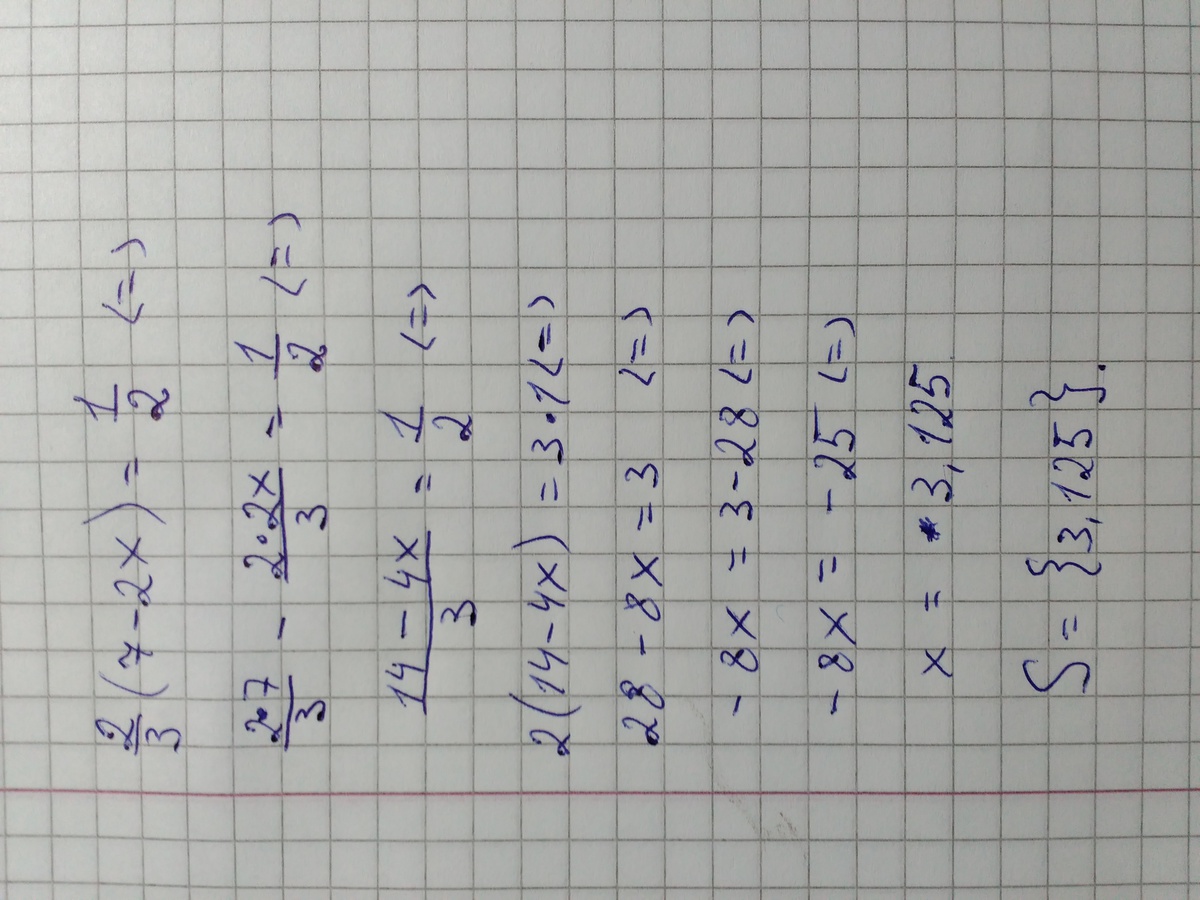 2/3 (7-2x) = 1/2 <=>
2•7/3 - 2•2x/3 = 1/2 <=>
14-4x/3 = 1/2 <=>
2(14-4x) = 3•1 <=>
28-8x = 3 <=>
-8x = 3-28 <=>
-8x = -25 <=>
x = 3,125
S = {3,125}.